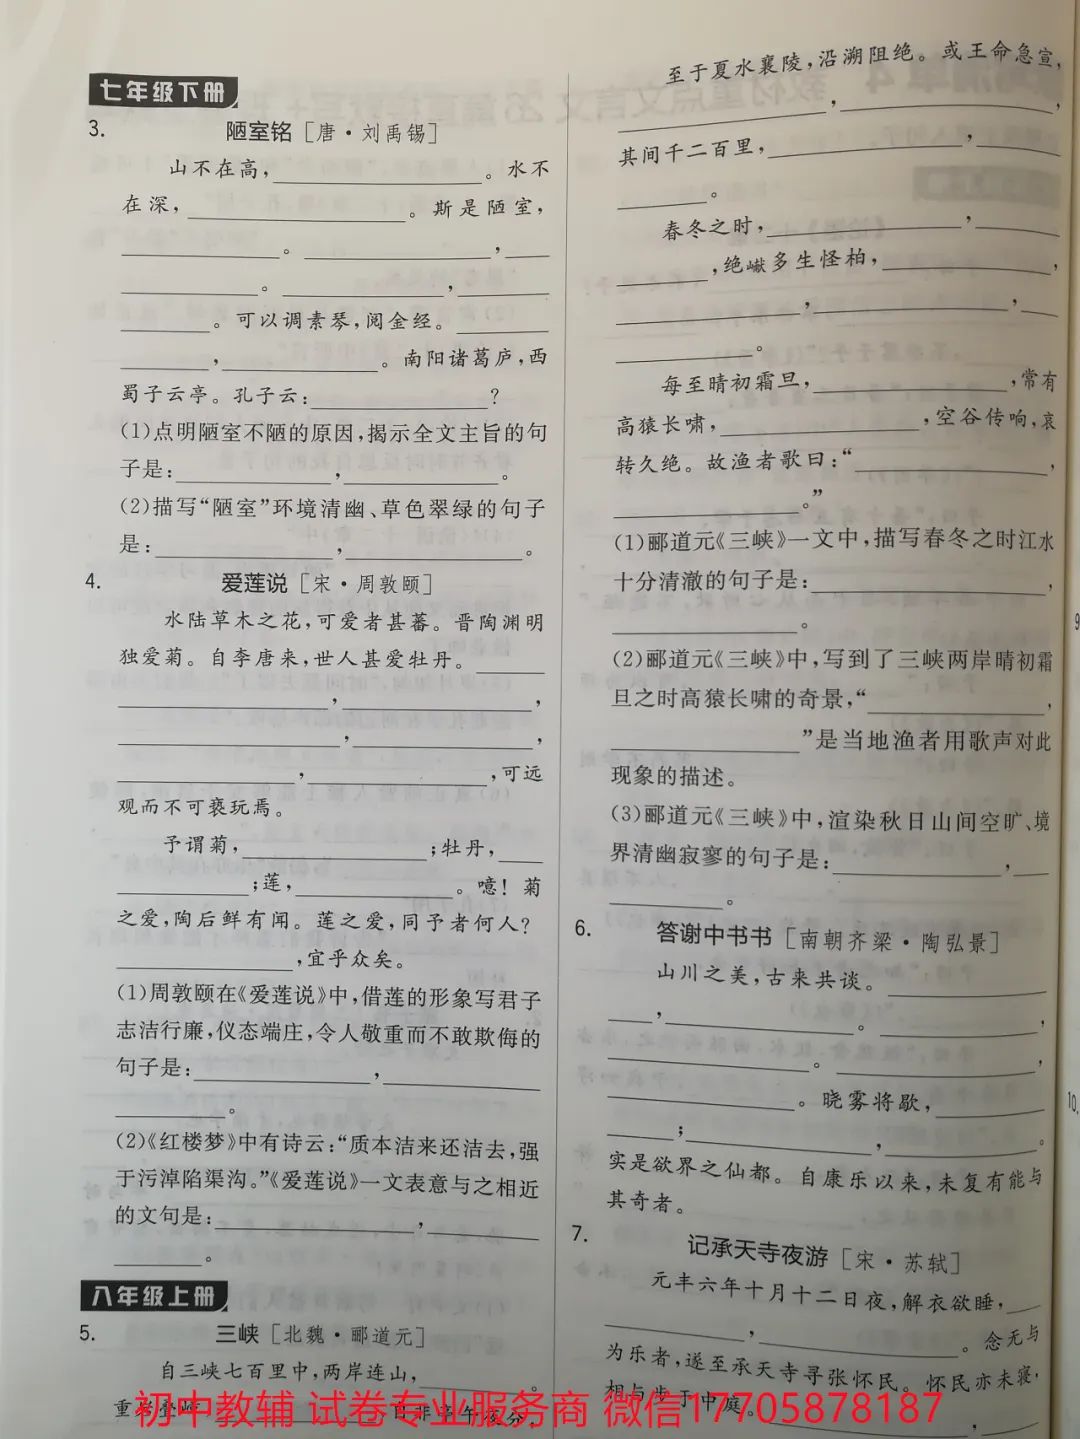 七年级下册
3. 陋室铭[唐·刘禹锡]
山不在高,____。水不
在深,____。斯是陋室,
____。____,
____。____,
____。可以调素琴,阅金经。____
____,____。南阳诸葛庐,西
蜀子云亭。孔子云:____?
(1)点明陋室不陋的原因,揭示全文主旨的句
子是:____,____。
(2)描写“陋室”环境清幽、草色翠绿的句子
是:____,____。
4. 爱莲说[宋·周敦颐]
水陆草木之花,可爱者甚蕃。晋陶渊明
独爱菊。自李唐来,世人甚爱牡丹。____
____,____,
____,____,
____,____,可远
观而不可亵玩焉。
予谓菊,____;牡丹,____
____;莲,____。噫!菊
之爱,陶后鲜有闻。莲之爱,同予者何人?
____,宜乎众矣。
(1)周敦颐在《爱莲说》中,借莲的形象写君子
志洁行廉,仪态端庄,令人敬重而不敢欺侮的
句子是:____,____
____。
(2)《红楼梦》中有诗云:“质本洁来还洁去,强
于污淖陷渠沟。”《爱莲说》一文表意与之相近
的文句是:____,____
____。
八年级上册
5. 三峡[北魏·郦道元]
自三峡七百里中,两岸连山,____。
初中教辅 试卷专业服务商 微信17705878187
至于夏水襄陵,沿溯阻绝。或王命急宣,
____,____,
其间千二百里,____,____
____。
春冬之时,____,____
____,绝𪩘多生怪柏,____,
____,____,
____。
每至晴初霜旦,____,常有
高猿长啸,____,空谷传响,哀
转久绝。故渔者歌曰:“____,
____。”
(1)郦道元《三峡》一文中,描写春冬之时江水
十分清澈的句子是:____,
____。
(2)郦道元《三峡》中,写到了三峡两岸晴初霜
旦之时高猿长啸的奇景,“____,
____”是当地渔者用歌声对此
现象的描述。
(3)郦道元《三峡》中,渲染秋日山间空旷、境
界清幽寂寥的句子是:____,____
____。
6. 答谢中书书[南朝齐梁·陶弘景]
山川之美,古来共谈。____
____,____。____,
____。____,
____。晓雾将歇,____
____;____,____。
实是欲界之仙都。自康乐以来,未复有能与
其奇者。
7. 记承天寺夜游[宋·苏轼]
元丰六年十月十二日夜,解衣欲睡,____
____,____。念无与
为乐者,遂至承天寺寻张怀民。怀民亦未寝,
相与步于中庭。____,____
9
10.